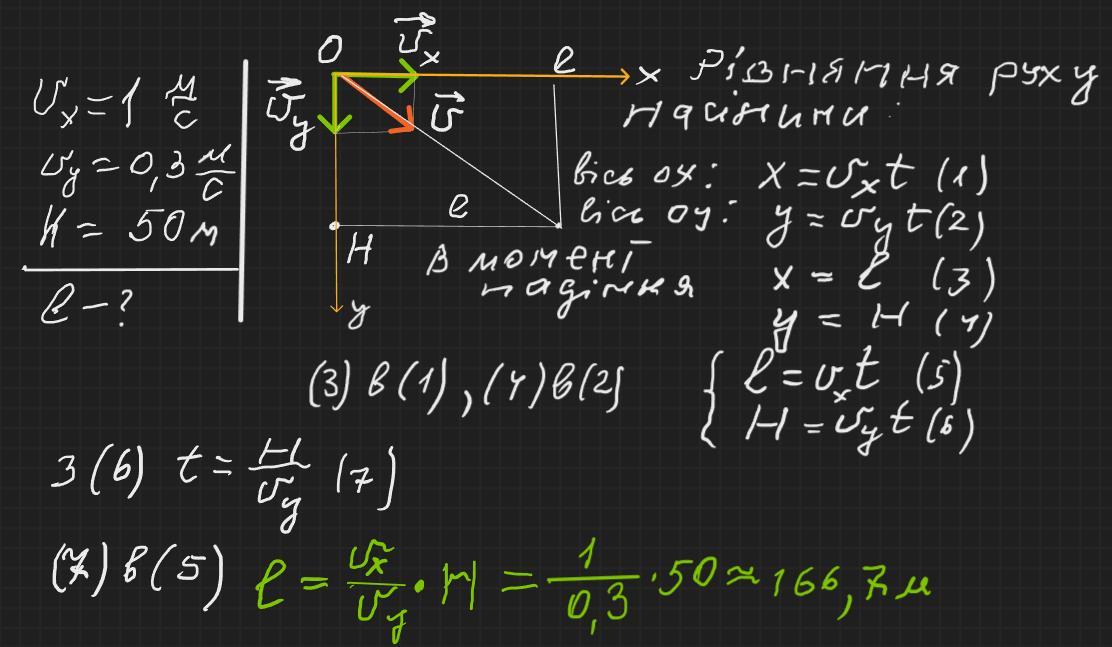 υₓ = 1 м/с
υᵧ = 0,3 м/с
H = 50 м
l - ?
O
υₓ
l
x
υᵧ
υ
l
H
y
Рівняння руху
насінини:
вісь ox: x = υₓt (1)
вісь oy: y = υᵧt (2)
В момент
падіння
x = l (3)
y = H (4)
(3) в (1), (4) в (2)
{ l = υₓt (5)
H = υᵧt (6)
З (6) t = H/υᵧ (7)
(7) в (5) l = υₓ/υᵧ · H = 1/0,3 · 50 ≈ 166,7 м